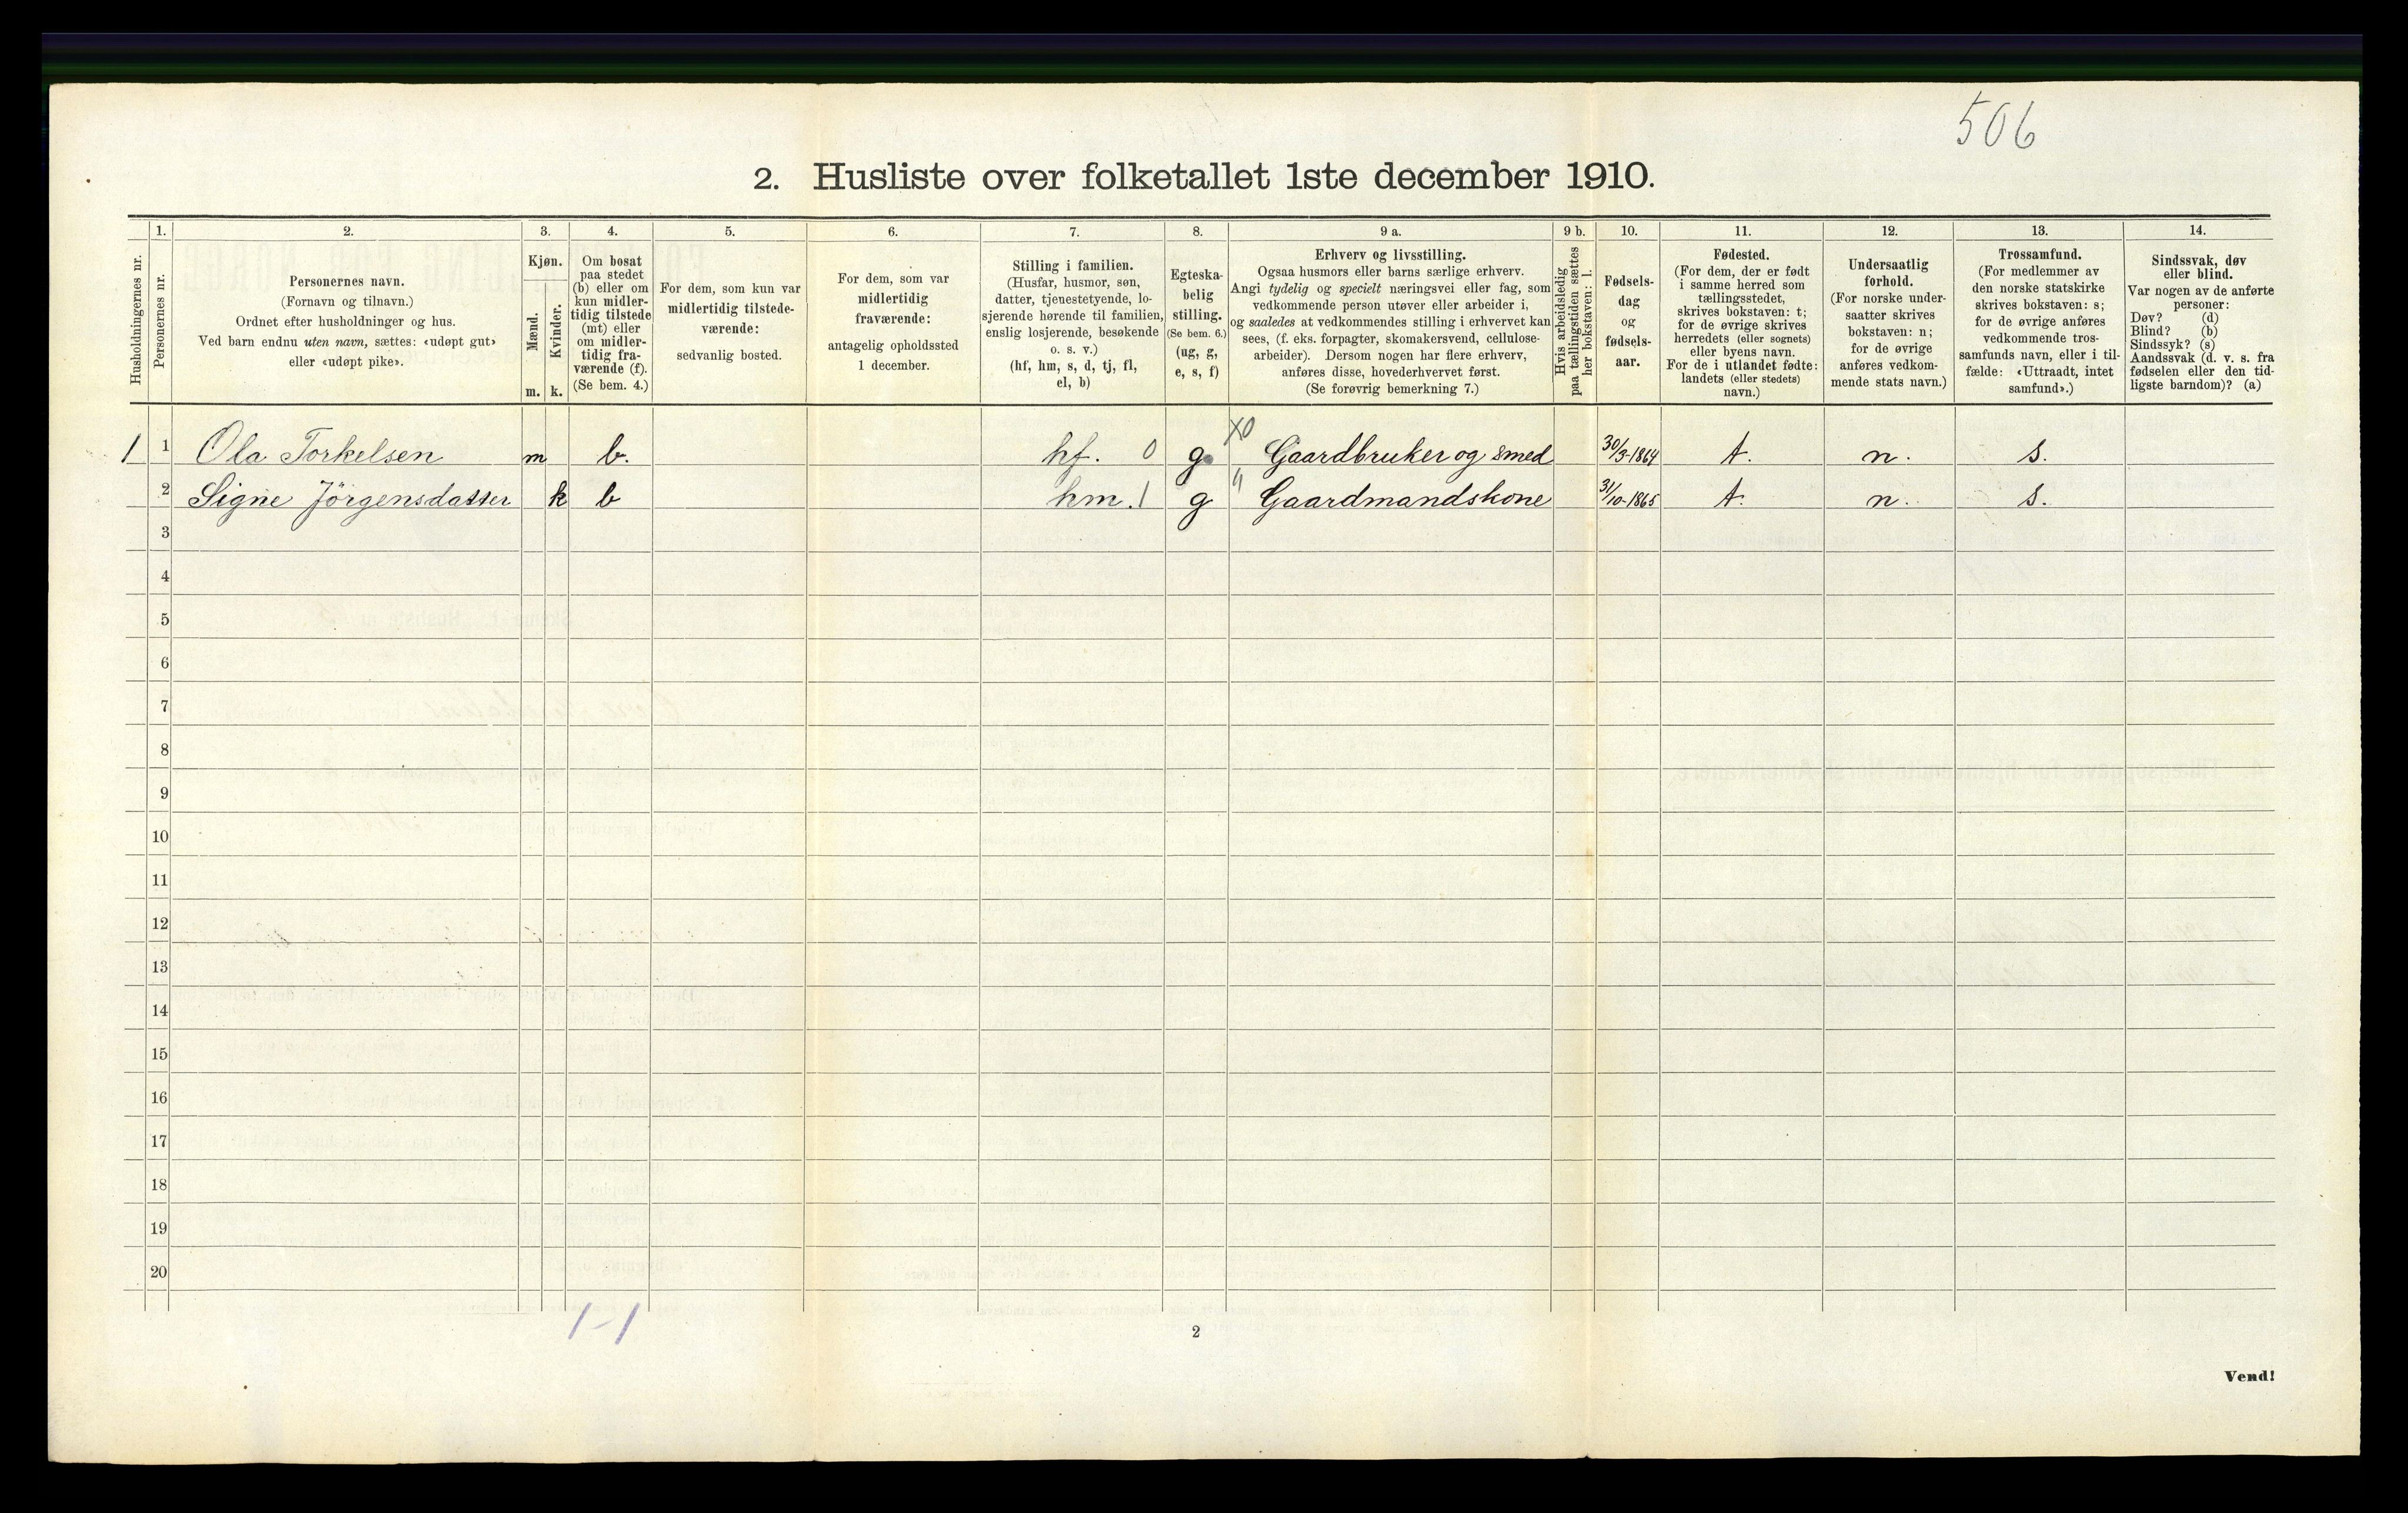 506
2. Husliste over folketallet 1ste december 1910.
1. 2. 3. 4. 5. 6. 7. 8. 9 a. 9 b. 10. 11. 12. 13. 14.
Husholdningernes nr.
Personernes nr.
Personernes navn.
(Fornavn og tilnavn.)
Ordnet efter husholdninger og hus.
Ved barn endnu uten navn, sættes: «udøpt gut»
eller «udøpt pike».
Kjøn.
Mænd.
Kvinder.
m. k.
Om bosat
paa stedet
(b) eller om
kun midler-
tidig tilstede
(mt) eller
om midler-
tidig fra-
værende (f).
(Se bem. 4.)
For dem, som kun var
midlertidig tilstede-
værende:
sedvanlig bosted.
For dem, som var
midlertidig
fraværende:
antagelig opholdssted
1 december.
Stilling i familien.
(Husfar, husmor, søn,
datter, tjenestetyende, lo-
sjerende hørende til familien,
enslig losjerende, besøkende
o. s. v.)
(hf, hm, s, d, tj, fl,
el, b)
Egteska-
belig
stilling.
(Se bem. 6.)
(ug, g,
e, s, f)
Erhverv og livsstilling.
Ogsaa husmors eller barns særlige erhverv.
Angi tydelig og specielt næringsvei eller fag, som
vedkommende person utøver eller arbeider i,
og saaledes at vedkommendes stilling i erhvervet kan
sees, (f. eks. forpagter, skomakersvend, cellulose-
arbeider). Dersom nogen har flere erhverv,
anføres disse, hovederhvervet først.
(Se forøvrig bemerkning 7.)
Hvis arbeidsledig
paa tællingstiden sættes
her bokstaven: l.
Fødsels-
dag
og
fødsels-
aar.
Fødested.
(For dem, der er født
i samme herred som
tællingsstedet,
skrives bokstaven: t;
for de øvrige skrives
herredets (eller sognets)
eller byens navn.
For de i utlandet fødte:
landets (eller stedets)
navn.)
Undersaatlig
forhold.
(For norske under-
saatter skrives
bokstaven: n;
for de øvrige
anføres vedkom-
mende stats navn.)
Trossamfund.
(For medlemmer av
den norske statskirke
skrives bokstaven: s;
for de øvrige anføres
vedkommende tros-
samfunds navn, eller i til-
fælde: «Uttraadt, intet
samfund».)
Sindssvak, døv
eller blind.
Var nogen av de anførte
personer:
Døv? (d)
Blind? (b)
Sindssyk? (s)
Aandssvak (d. v. s. fra
fødselen eller den tid-
ligste barndom)? (a)
1 1 Ola Torkelsen m b. hf. 0 g. X0 Gaardbruker og smed 30/3-1864 t. n. s.
2 Signe Jörgensdatter k b hm. 1 g " Gaardmandskone 31/10-1865 t. n. s.
3
4
5
6
7
8
9
10
11
12
13
14
15
16
17
18
19
20
1-1
2
Vend!